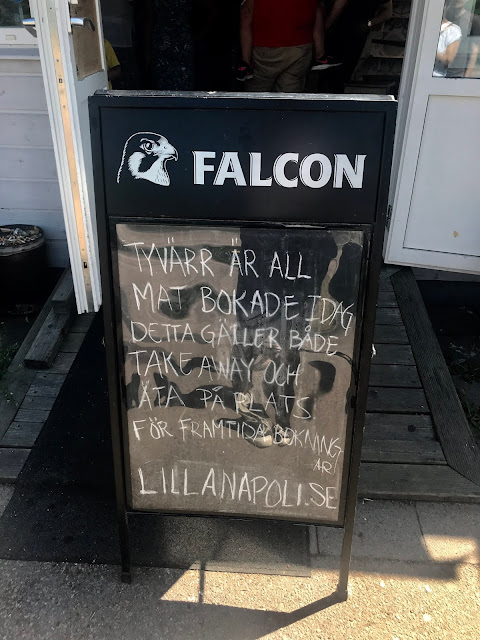 FALCON
TYVÄRR ÄR ALL
MAT BOKADE IDAG
DETTA GÄLLER BÅDE
TAKE AWAY OCH
ÄTA PÅ PLATS
FÖR FRAMTIDA BOKNING
AR!
LILLANAPOLI.SE